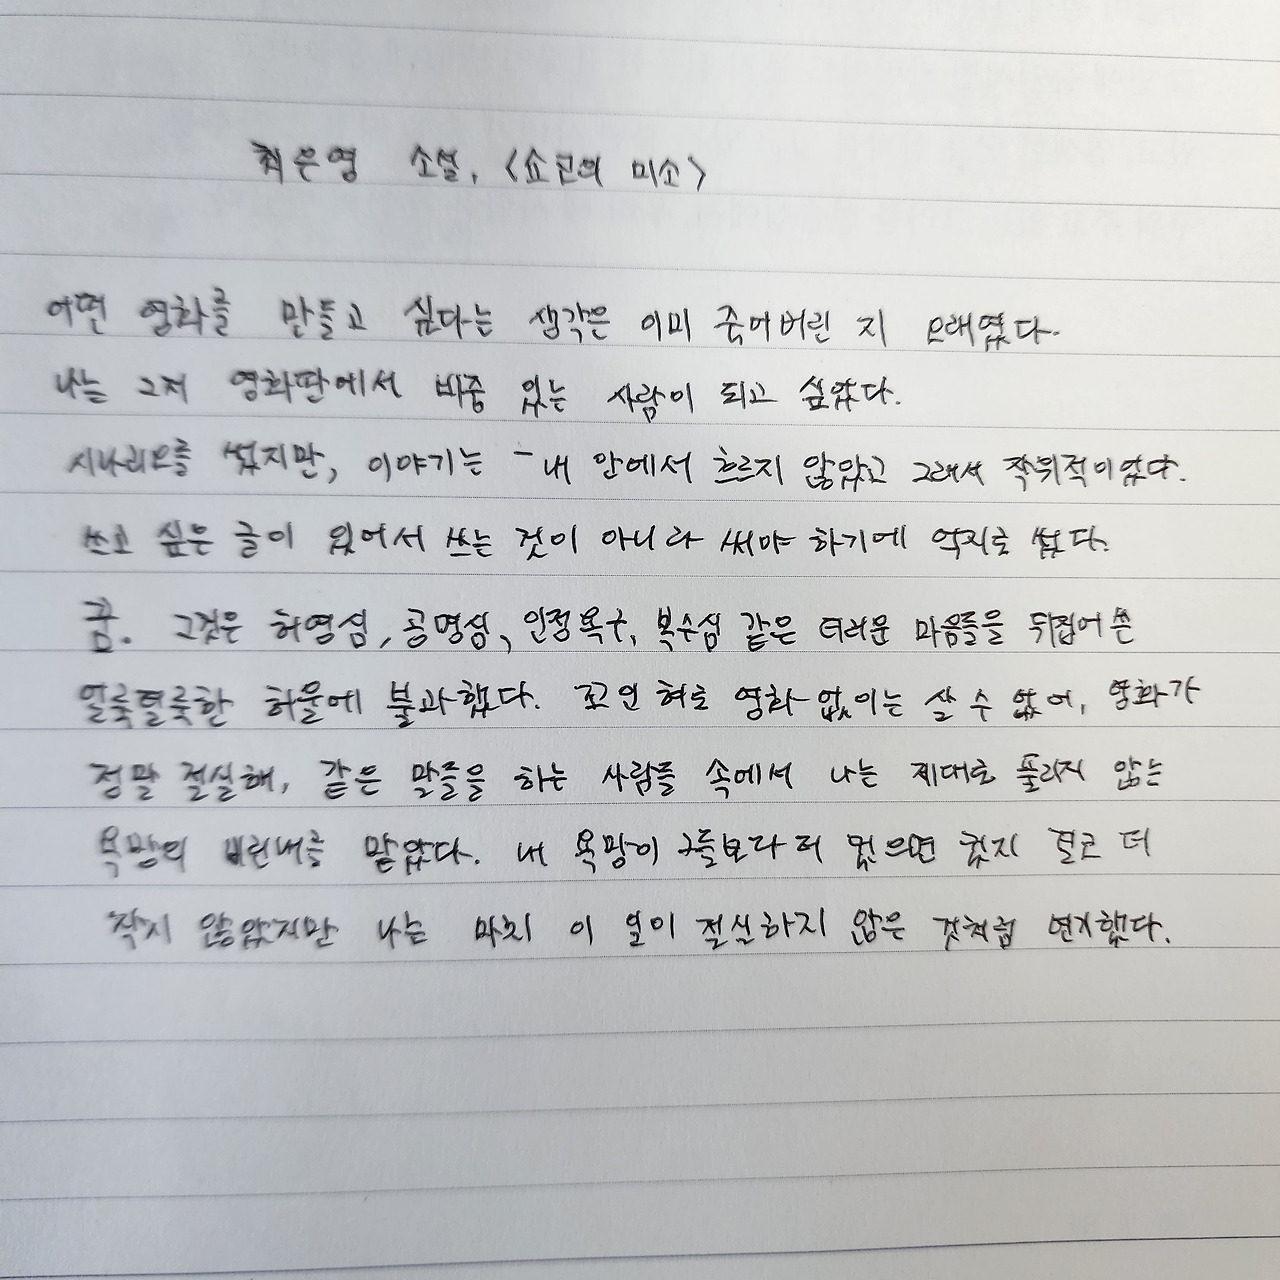 최은영 소설, <쇼코의 미소>
어떤 영화를 만들고 싶다는 생각은 이미 죽어버린 지 오래였다.
나는 그저 영화판에서 비중 있는 사람이 되고 싶었다.
시나리오를 썼지만, 이야기는 내 안에서 흐르지 않았고 그래서 작위적이었다.
쓰고 싶은 글이 있어서 쓰는 것이 아니라 써야 하기에 억지로 썼다.
꿈. 그것은 허영심, 공명심, 인정욕구, 복수심 같은 더러운 마음들을 뒤집어쓴
얼룩덜룩한 허울에 불과했다. 꼬인 혀로 영화 없이는 살 수 없어, 영화가
정말 절실해, 같은 말들을 하는 사람들 속에서 나는 제대로 풀리지 않는
욕망의 비린내를 맡았다. 내 욕망이 그들보다 더 컸으면 컸지 결코 더
작지 않았지만 나는 마치 이 일이 절실하지 않은 것처럼 연기했다.